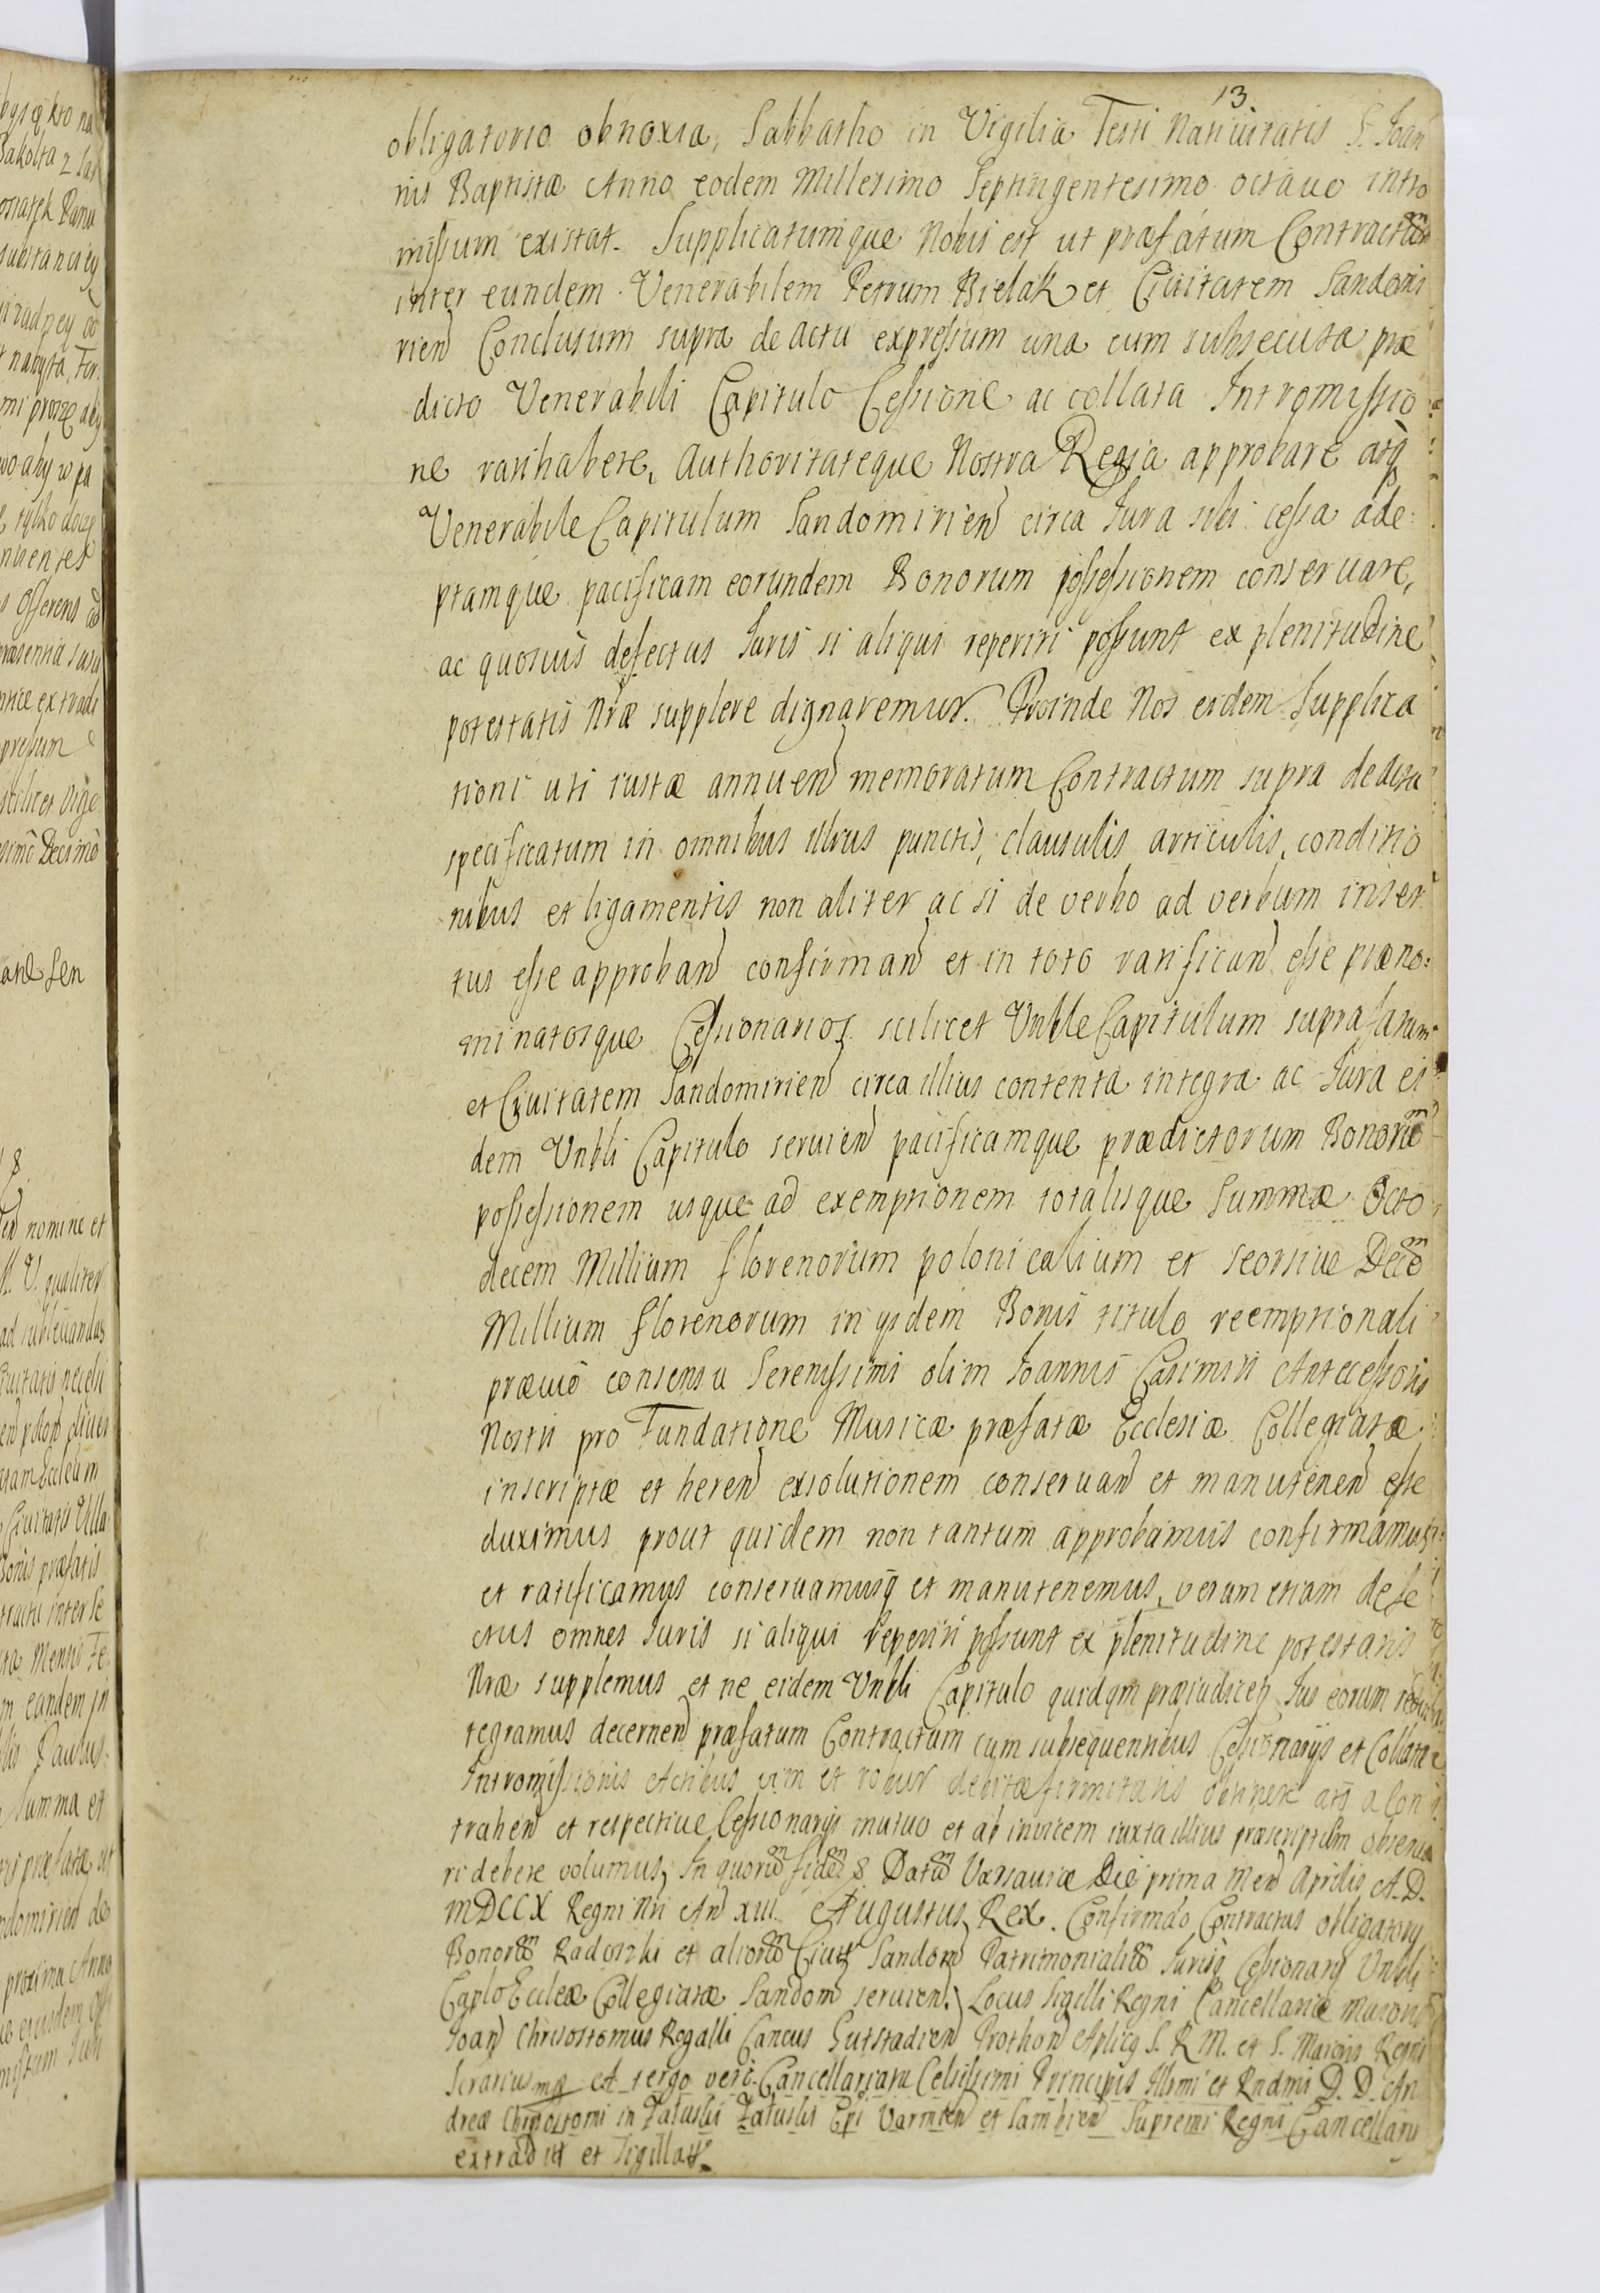 13.
obligatorio obnoxia, Sabbatho in Vigilia Festi Natiuitatis S. Joan
nis Baptistæ Anno eodem Millesimo Septingentesimo octauo intro
missum existat. Supplicatumque Nobis est ut præfatum Contractũm
inter eundem Venerabilem Petrum Bielak et Ciuitatem Sandomi
rien Conclusum supra de actu expressum una cum subsecuta præ
dicto Venerabili Capitulo Cessione ac collata Intromissio
ne ratihabere, Authoritateque Nostra Regia approbare atq
Venerabile Capitulum Sandomirien circa Jura sibi cessa ade:
ptamque pacificam eorundem Bonorum possessionem conseruare,
ac quosuis defectus Juris si aliqui reperiri possunt ex plenitudine
potestatis Nræ supplere dignaremur. Proinde Nos eidem Supplica
tioni uti iustæ annuen memoratum Contractum supra de actu
specificatum in omnibus illius punctis, clausulis articulis, conditio
nibus et ligamentis non aliter ac si de verbo ad verbum inser
tus esse approban confirman et in toto ratifican esse præno:
minatosque Cessionarios scilicet Vnble Capitulum suprafatum
et Ciuitatem Sandomirien circa illius contenta integra ac Jura ei
dem Vnbli Capitulo seruien pacificamque prædictorum Bonorũ
possessionem usque ad exemptionem totalisque Summæ Octo
decem Millium florenorum polonicalium et seorsiue Decẽ
Millium florenorum in ysdem Bonis titulo reemptionali
præuio consensu Serenissimi olim Joannis Casimiri Antecessoris
Nostri pro Fundatione Musicæ præfatæ Ecclesiæ Collegiatæ
inscriptæ et heren exsolutionem conseruan et manutenen esse
duximus prout quidem non tantum approbamus confirmamus
et ratificamus conseruamusq et manutenemus, verum etiam defe
ctus omnes Juris si aliqui reperiri possunt ex plenitudine potestatis
Nræ supplemus et ne eidem Vnbli Capitulo quidqm præiudicet Jus eorum
tegramus decernen præfatum Contractum cum subsequentibus Cessionarijs et Collatæ
Intromissionis Actibus vim et robur debitæ firmitatis obtinere atq a Con
trahen et respectiue Cessionarijs mutuo et ab inuicem iuxta illius præscriptum obserua
ri debere volumus, In quorũ fidẽ 8 Datũ Varsauiæ Die prima Men Aprilis A. D.
MDCCX Regni Nri An XIII. Augustus Rex. Confirmão Contractus obligatorij
Bonorũ Radoszki et aliorũ Ciuit Sandom Patrimonialiũ Jurisq Cessionarij Vnbli
Caplo Eccleæ Collegiatæ Sandom seruien. Locus Sigilli Regni Cancellariæ maioris
Joan Chrisostomus Regalli Cancus Gutstadien Prothon Aplicq S. R. M. et S. Maioris Regni
Srarius mp A tergo vero Cancellariatu Celsissimi Principis Illmi et Rndmi D. D. An
dreæ Chrisostomi in Załuskie Załuski Epi Varmien et Sambien Supremi Regni Cancellarij
extradit et Sigillatt.